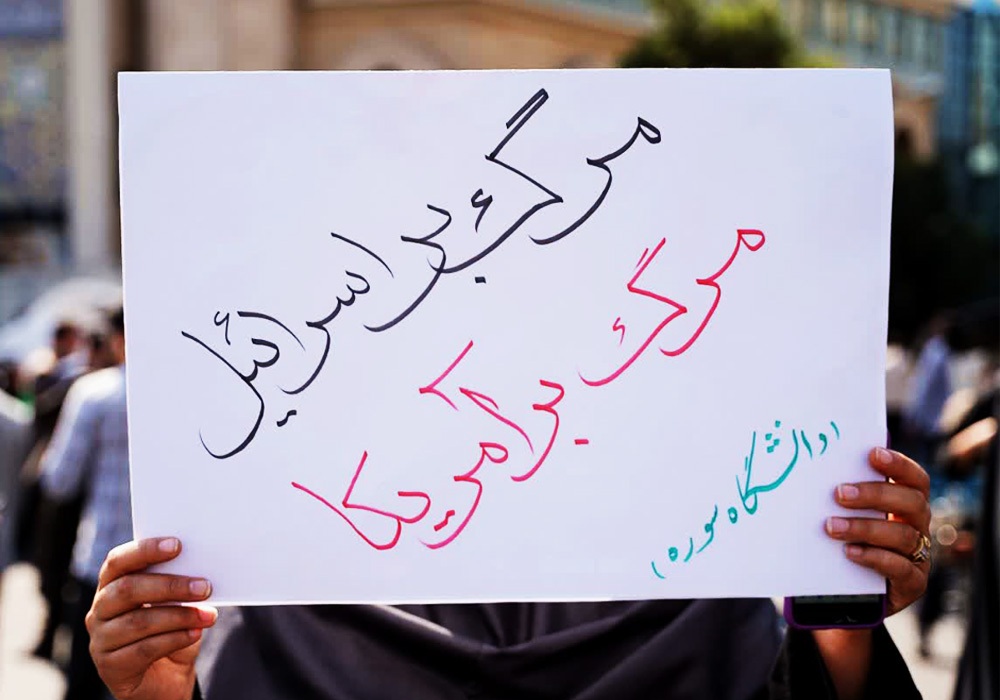 مرگ بر اسرائیل
مرگ بر امریکا
(دانشگاه سوره)